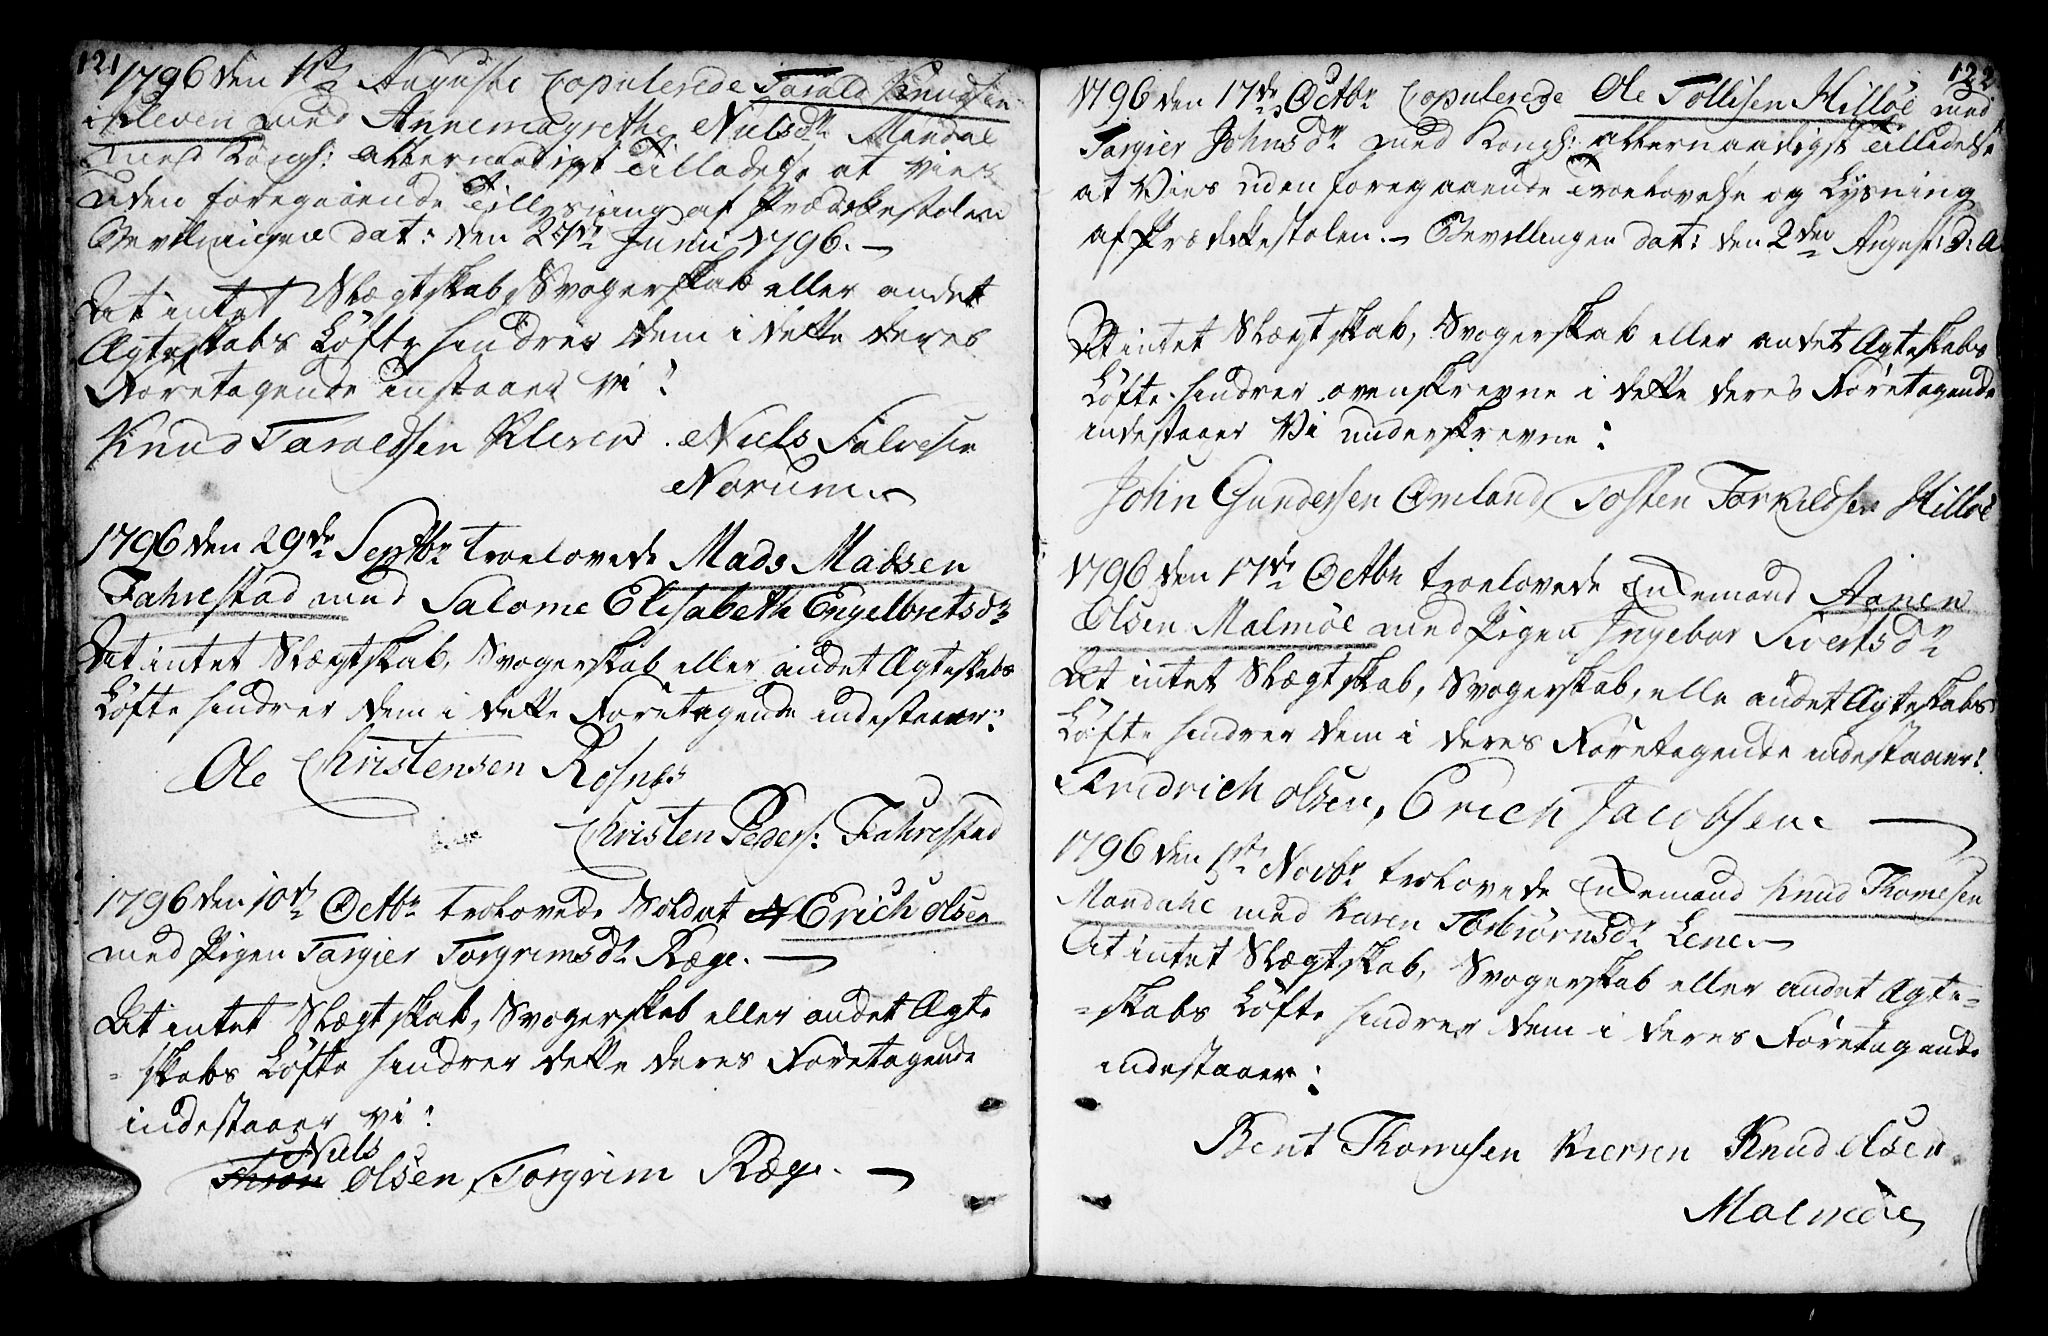 121
1796 den 1ste Auguste Copulerede Tarald Knudsen
i Kleven med Annemagrethe Nielsdr Mandal
med Kongl: allernaadigst Tilladelse at Vies
uden foregaaende Tillysning af Prædikestolen
Bevilningen dat: den 24de Junii 1796. –
At intet Slægtskab, Svogerskab eller andet
Ægteskabs Løfte hindrer dem i dette deres
Foretagende indstaaer vi:
Knud Taraldsen Kleven. Niels Salvesen
Norum
1796 den 29de Septbr troelovede Mads Madsen
Fahrestad med Salome Elisabeth Engelbretsdr
At intet Slægtskab, Svogerskab eller andet Ægteskabs
Løfte hindrer dem i dette Foretagende indestaaer:
Ole Christensen Rosnes
Christen Peders: Fahrestad
1796 den 10de Octbr trolovede Soldat Erich Olsen
med Pigen Targier Torgrimsdr Ræge. –
At intet Slægtskab, Svogerskab eller andet Ægte
= skabs Løfte hindrer dette deres Foretagende
indestaaer vi:
Niels
Olsen, Torgrim Ræge. –
122
1796 den 17de Octbr Copulerede Ole Tollisen Hilløe med
Targier Johnsdr med Kongl: allernaadigst Tilladelse
at Vies uden foregaaende Troelovelse og Lysning
af Prædikestolen. – Bevillingen dat: den 2den August: d: A
At intet Slægtskab, Svogerskab eller andet Ægteskabs
Løfte hindrer ovenskrevne i dette deres Foretagende
indestaaer Vi underskrevne:
John Gundersen Omland, Tosten Torkildsen Hilløe
1796 den 17de Octbr troelovede Enkemand Aanen
Olsen Malmøe med Pigen Ingebor Sivertsdr
At intet Slægtskab, Svogerskab, elle andet Ægteskabs
Løfte hindrer dem i deres Foretagende indestaaer:
Fridrich Olsen, Erich Jacobsen –
1796 den 1ste Novbr trolovede Enkemand Knud Thomesen
Mandahl med Karen Torbiørnsdr Lene –
At intet Slægtskab, Svogerskab eller andet Ægte=
= skabs Løfte hindrer dem i deres Foretagende
indestaaer:
Bent Thomesen Knud Olsen
Malmøe